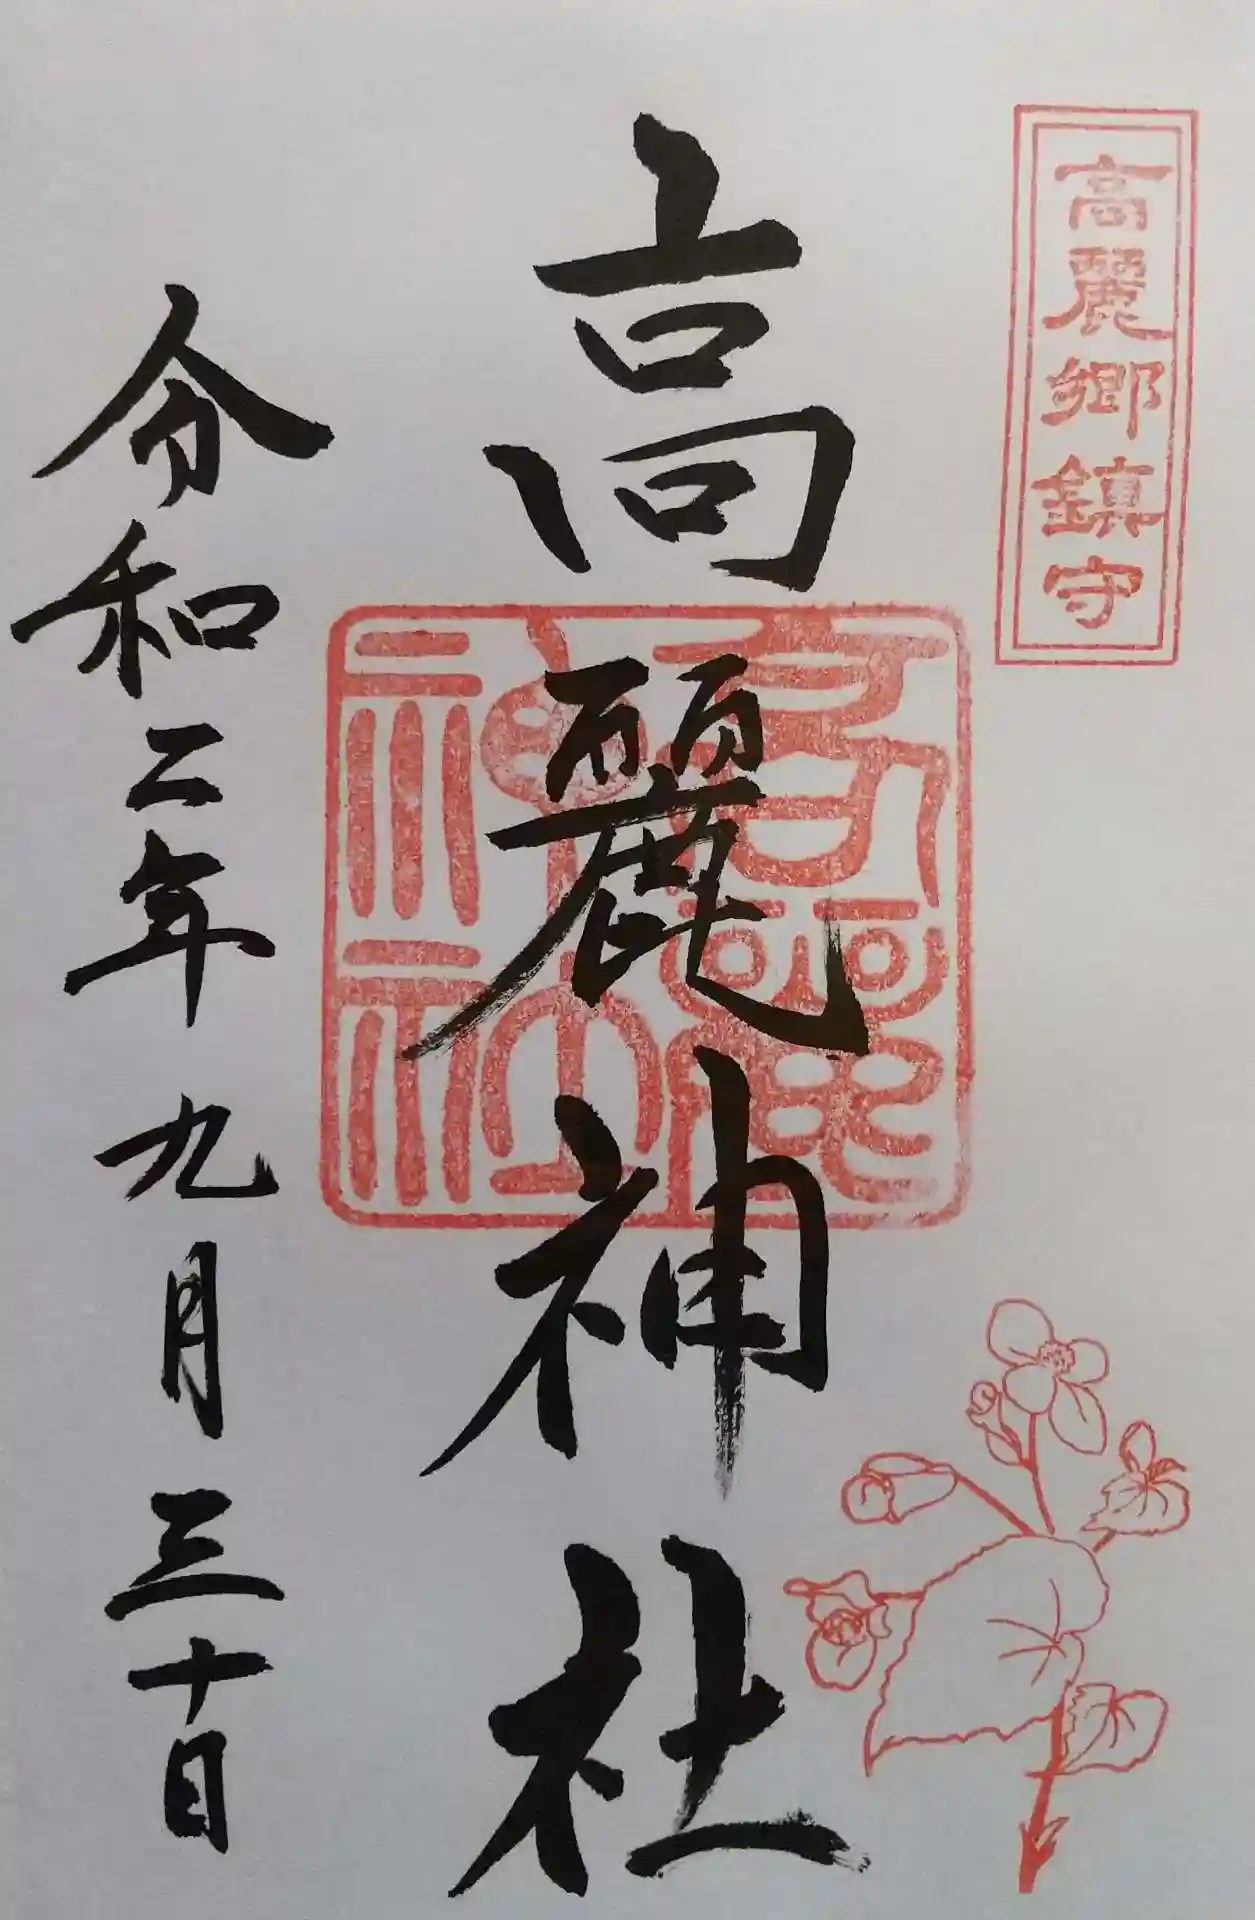 高麗郷鎮守
高麗神社
高麗神社
令和二年九月三十日